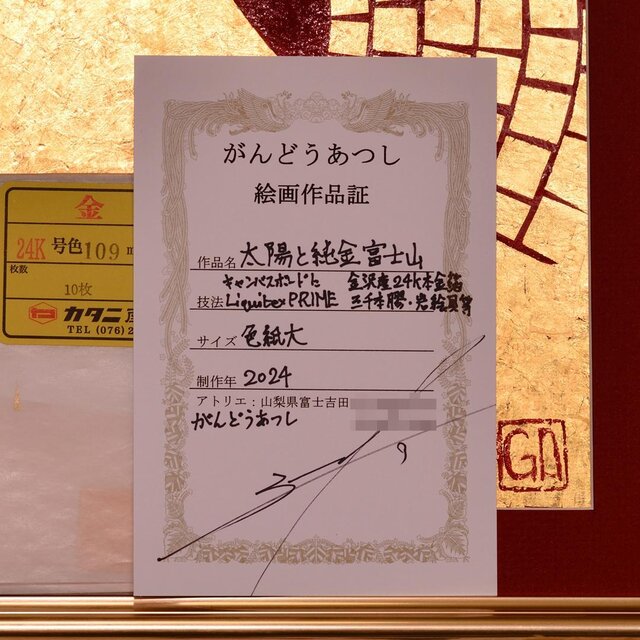 がんどうあつし
絵画作品証
作品名 太陽と純金富士山
キャンバスボードに 金沢産24K本金箔
技法 Liquitex PRIME 三千本膠・岩絵具等
サイズ 色紙大
制作年 2024
アトリエ:山梨県富士吉田
がんどうあつし
金
24K 号色 109
枚数
10枚
カタニ
TEL (076) 2
GA